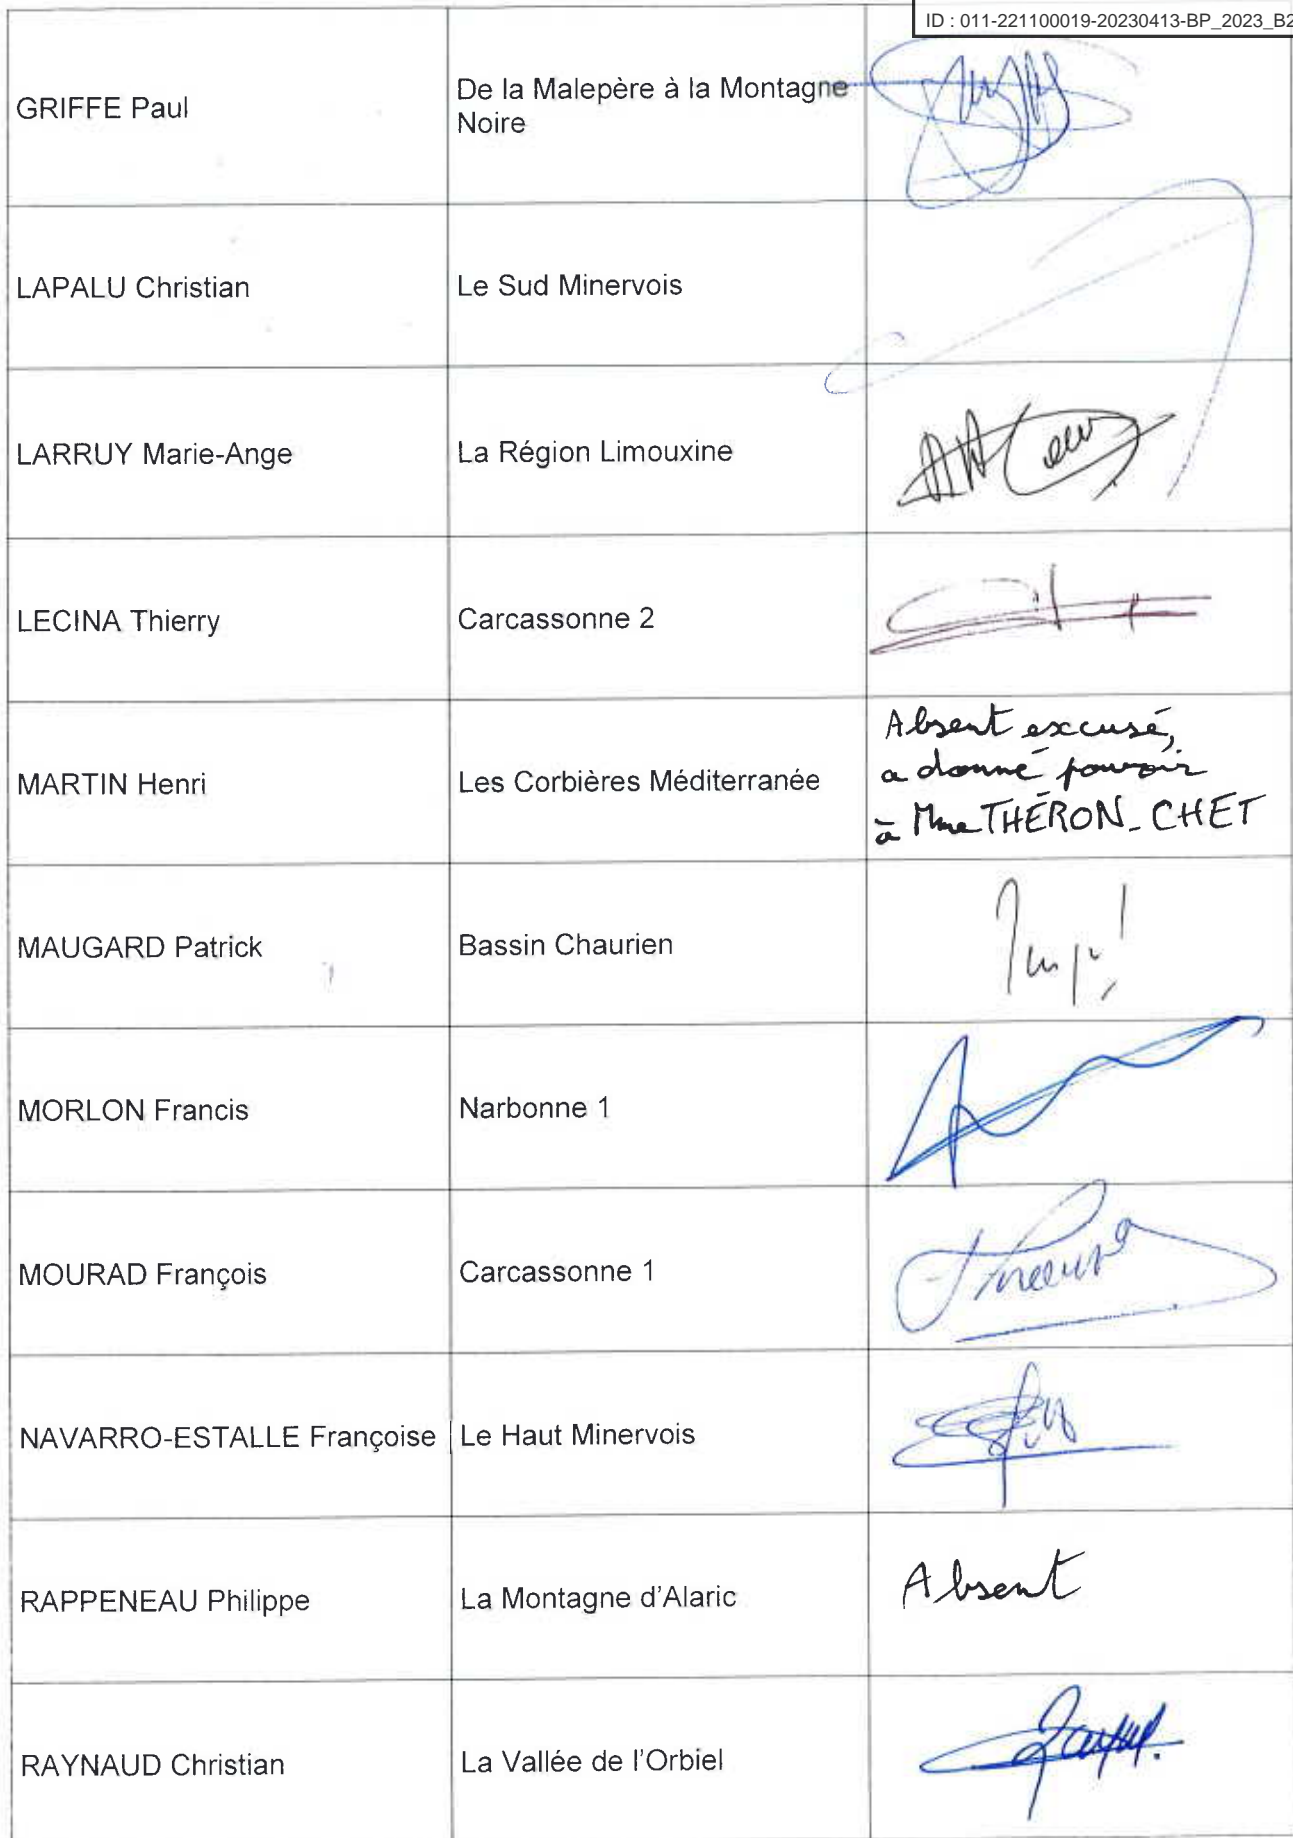 ID : 011-221100019-20230413-BP_2023_B2
GRIFFE Paul
De la Malepère à la Montagne
Noire
LAPALU Christian
Le Sud Minervois
LARRUY Marie-Ange
La Région Limouxine
LECINA Thierry
Carcassonne 2
MARTIN Henri
Les Corbières Méditerranée
Absent excusé,
a donné pouvoir
à Mme THÉRON-CHET
MAUGARD Patrick
Bassin Chaurien
MORLON Francis
Narbonne 1
MOURAD François
Carcassonne 1
NAVARRO-ESTALLE Françoise
Le Haut Minervois
RAPPENEAU Philippe
La Montagne d'Alaric
Absent
RAYNAUD Christian
La Vallée de l'Orbiel